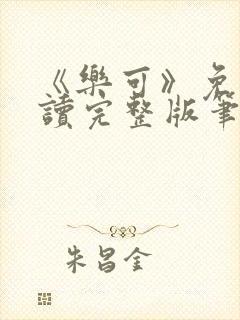 《樂可》免
讀完整版筆
朱昌金